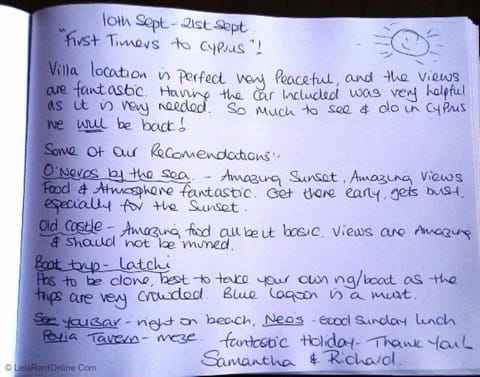 10th Sept - 21st Sept
"First Timers to Cyprus"!
Villa location is perfect very peaceful, and the views
are fantastic. Having the car included was very helpful
as it is very needed. So much to see & do in Cyprus
we will be back!
Some of our Recomendations:-
O'Neros by the sea. - Amazing Sunset, Amazing Views
Food & Atmosphere fantastic. Get there early, gets busy.
especially for the Sunset.
Old Castle - Amazing food all be it basic. Views are Amazing
& Should not be missed.
Boat trip - Latchi
Has to be done, best to take your own rig/boat as the
trips are very crowded. Blue Lagoon is a must.
See You Bar - right on beach, Neo's - Good Sunday lunch
Tavern - meze. fantastic Holiday - Thank You!
Samantha & Richard.
© LetsRentOnline.Com